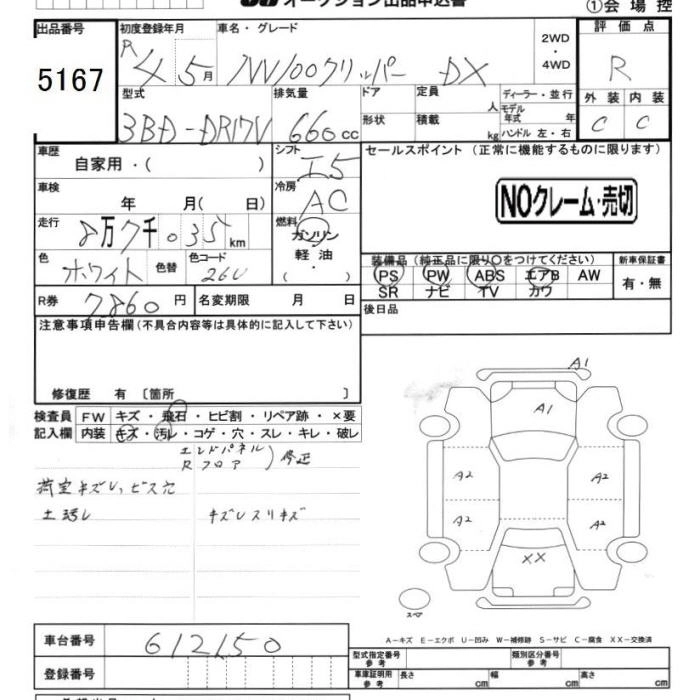 オークション出品申込書
①会場控
出品番号
5167
初度登録年月
R
4 5月
車名・グレード
NV100クリッパー DX
2WD
・
4WD
評価点
R
型式
3BD-DR17V
排気量
660cc
ドア
形状
定員
人
積載
kg
ディーラー・並行
モデル
年式 年
ハンドル 左・右
外装 内装
C C
車歴
自家用・( )
シフト
I5
セールスポイント (正常に機能するものに限ります)
車検
年 月( 日)
冷房
AC
NOクレーム・売切
走行
8万7千035km
燃料
ガソリン
軽油
( ・ )
色
ホワイト
色替
色コード
26U
装備品(純正品に限り〇をつけてください)
新車保証書
PS PW ABS エアB AW
SR ナビ TV カワ
有・無
R券
7,860円
名変期限 月 日
後日品
注意事項申告欄(不具合内容等は具体的に記入して下さい)
修復歴 有 〔箇所 〕
検査員 FW キズ・飛石・ヒビ割・リペア跡・×要
記入欄 内装 キズ・汚レ・コゲ・穴・スレ・キレ・破レ
エンドパネル
Rフロア ) 修正
荷室キズレ、ビス穴
キズレスリキズ
A1
A1
A2 A2
A2 A2
XX
スペア
A-キズ E-エクボ U-凹み W-補修跡 S-サビ C-腐食 XX-交換済
車台番号
612150
登録番号
型式指定番号
参考
類別区分番号
参考
車庫証明用
参考
長さ cm 幅 cm 高さ cm